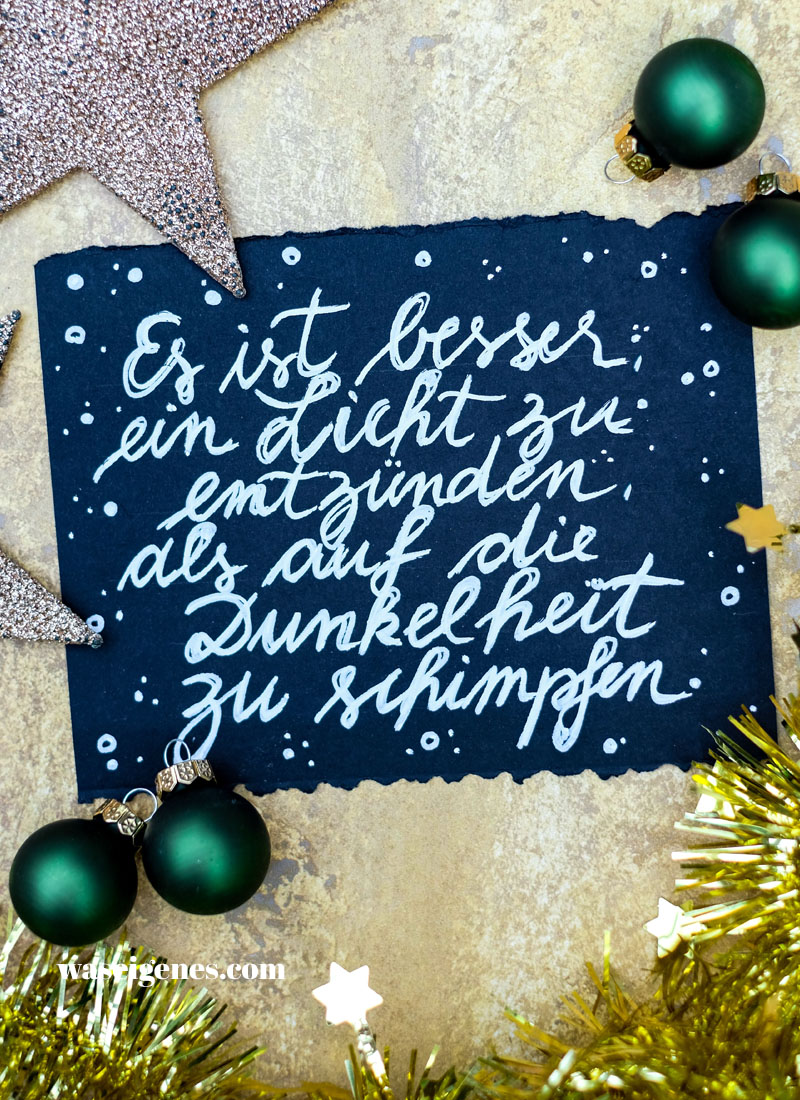 Es ist besser,
ein Licht zu
entzünden,
als auf die
Dunkelheit
zu schimpfen
waseigenes.com